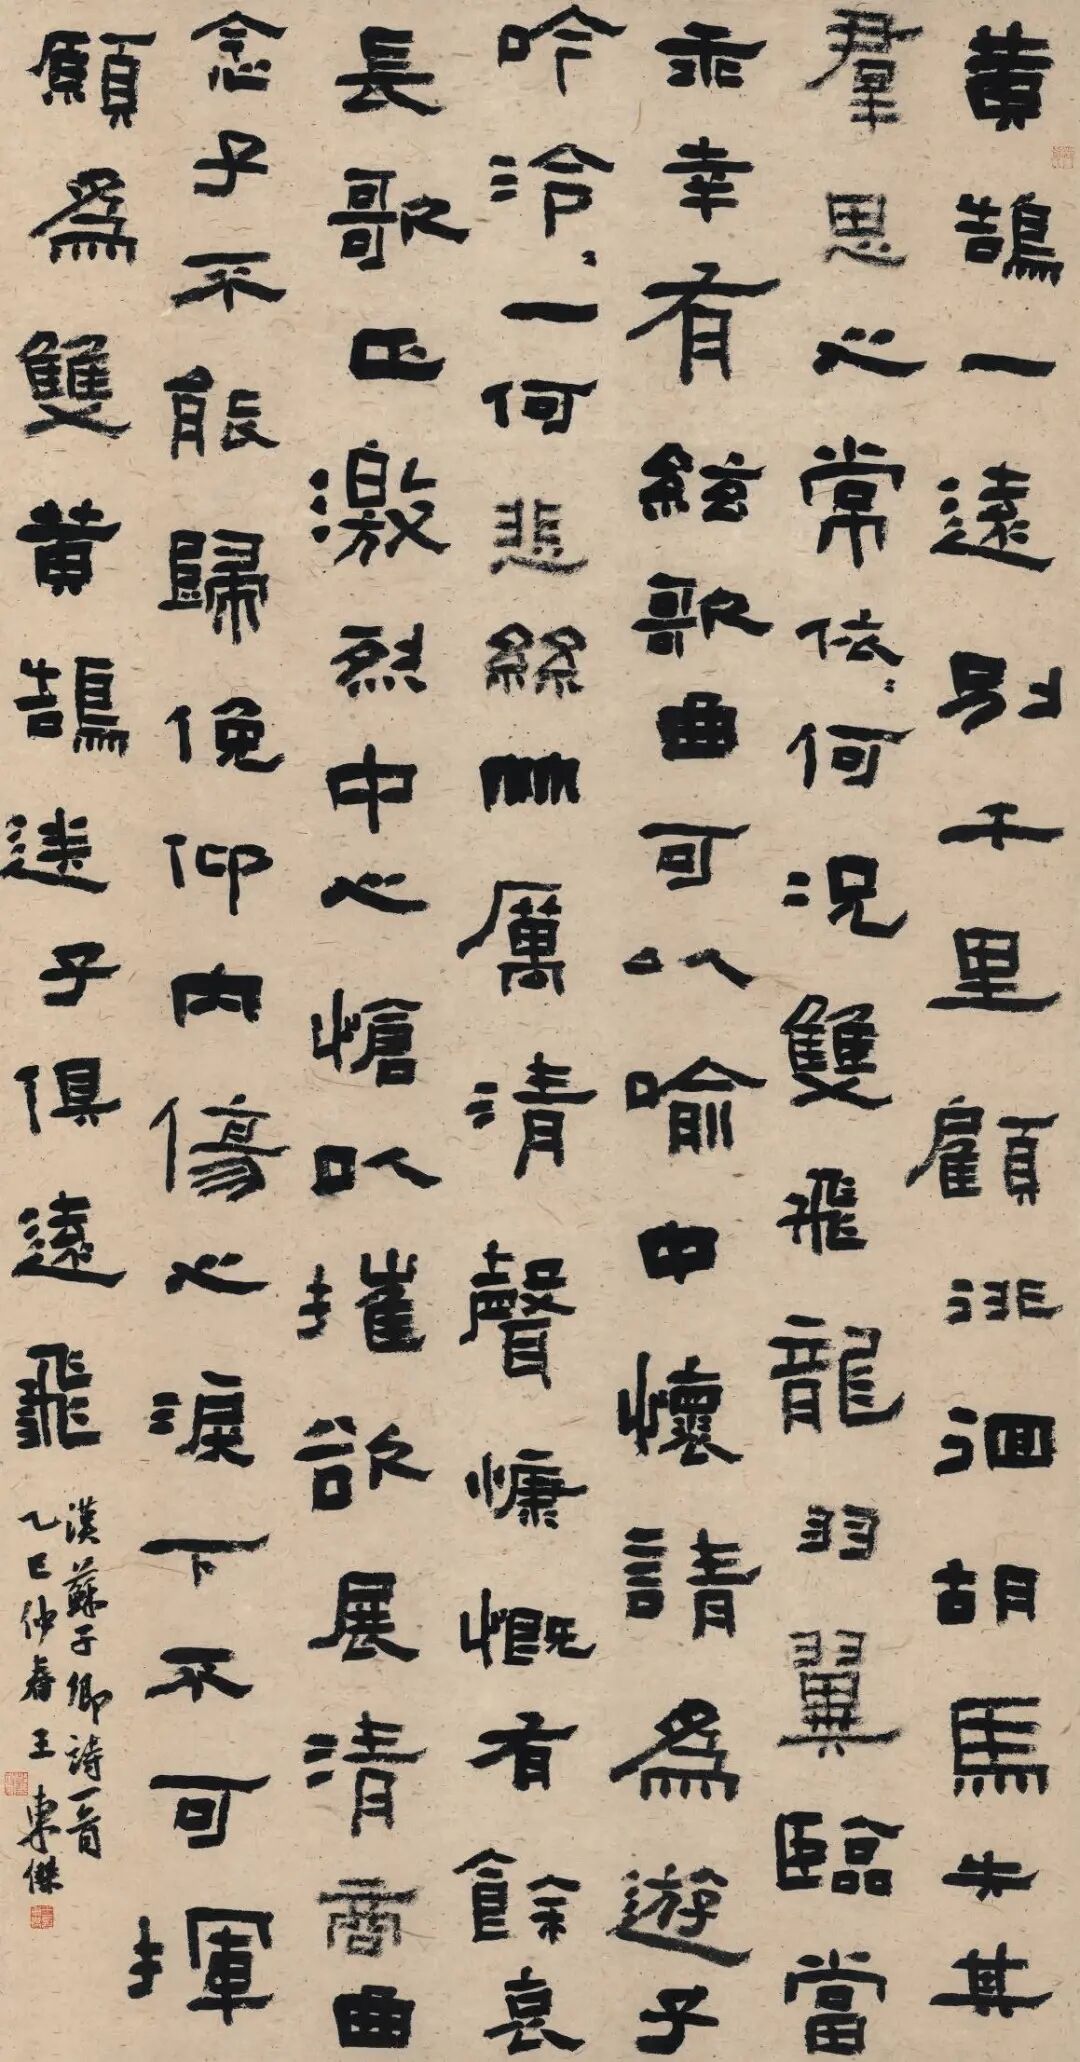 黄鵠一遠別千里顧徘徊胡馬失其
羣思心常依〻何況雙飛龍羽翼臨當
乖幸有絃歌曲可以喻中懷請為遊子
吟泠〻一何悲絲竹厲清聲慷慨有餘哀
長歌正激烈中心愴以摧欲展清商曲
念子不能歸俛仰內傷心淚下不可揮
願為雙黄鵠送子俱遠飛
漢蘇子卿詩一首
乙巳仲春王東傑